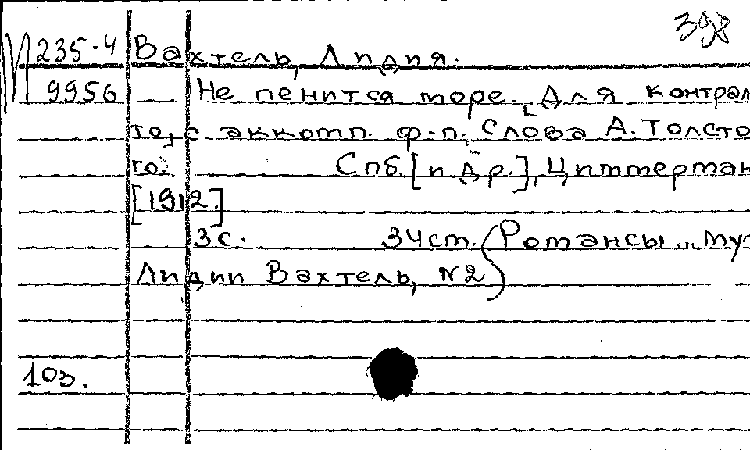 398
235-4 Вахтель, Лидия.
9956 Не пенится море. [Для контрал
то, с аккомп. ф.-п. Слова А. Толсто
го. Спб. [и др.], Циммерман
[1912.]
3с. 34 см. (Романсы ... муз
Лидии Вахтель, №2)
103.